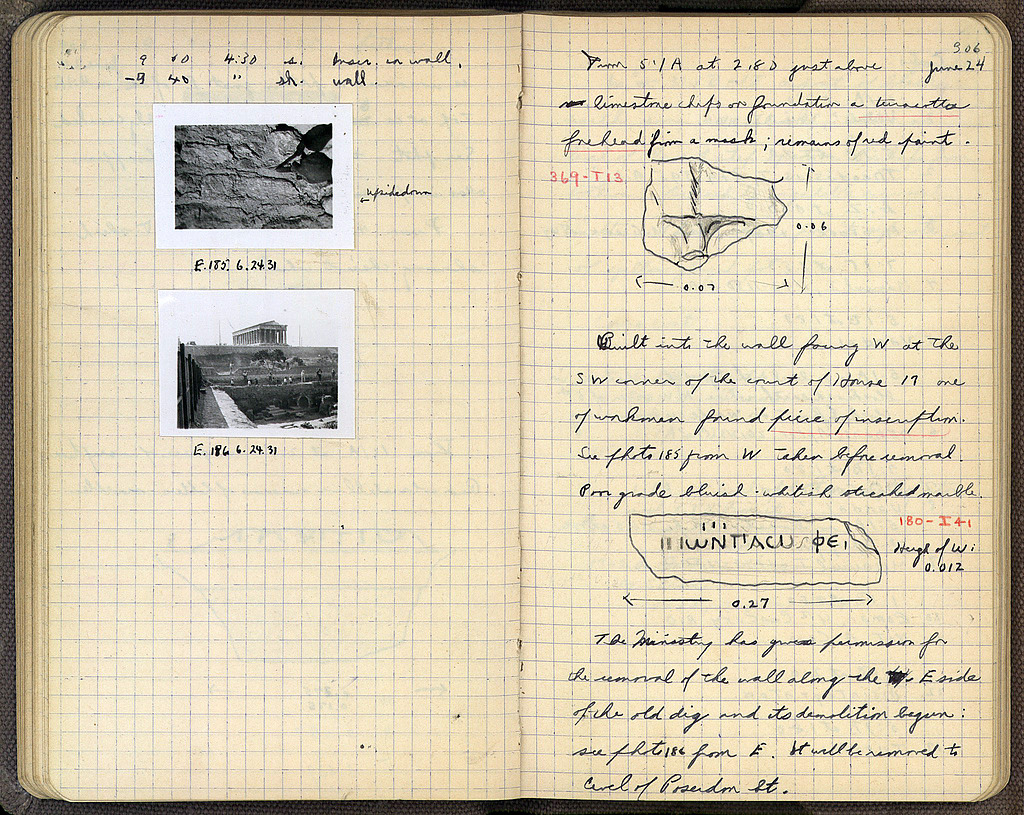 9 60 4:30 s. Inscr. in wall.
-9 40 " sh. wall.
upsidedown
E.185. 6.24.31
E.186 6.24.31
306
From 51/A at 2.80 just above June 24
limestone chips on foundation a terracotta
forehead from a mask; remains of red paint.
369-T13
0.06
0.07
Built into the wall facing W at the
SW corner of the court of House 19 one
of workmen found piece of inscription.
See photo 185 from W taken before removal.
Poor grade bluish-whitish streaked marble.
180-I41
ΦΕΙ
Heigh of W:
0.012
0.27
The Ministry has given permission for
the removal of the wall along the E side
of the old dig and its demolition begun:
see photo 186 from E. It will be removed to
level of Poseidon St.